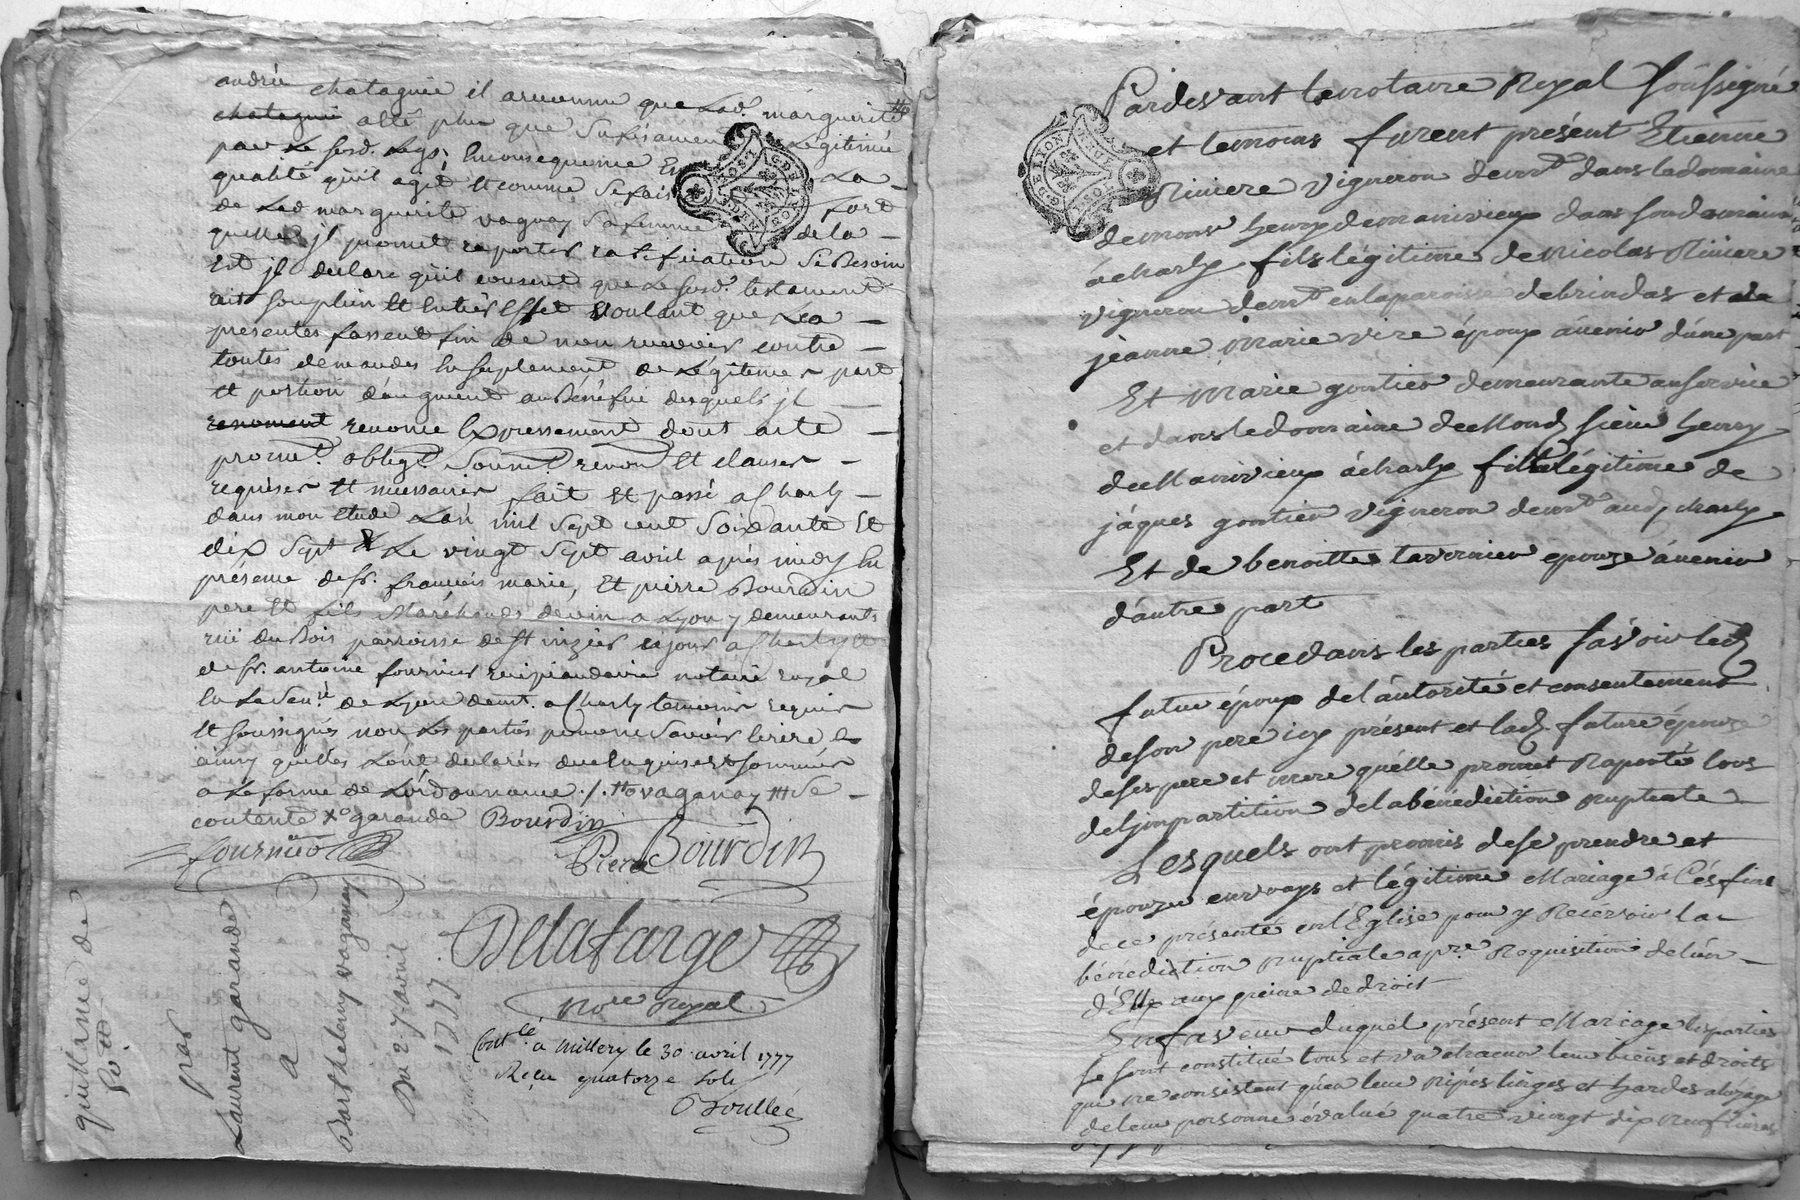 andrée chatagnié il avienne que Lad. marguerite
chatagnié a été plus que sufisament Légitimée
par Le susd. Legs; Enconsequence En La
qualité qu'il agit Et comme se fais fort
de Lad marguerite vaganay sa femme de la
quelle jl promet raporter ratification se Besoin
Est jl declare qu'il consent que Le susd. testament
ait son plein Et Entier Effet voulant que Les
presentes fassent fin de non recevoir contre
toutes demandes En suplement de Légitimes part
Et portion d'augment au Bénéfice desquels jl
renoncent renonce Expressement dont acte
promet. obligt. soumet. renon Et clauses
requises Et necessaires fait Et passé a Charly
dans mon Etude Lan mil sept cent soixante Et
dix sept & Le vingt sept avril après midy En
présence de sr. francois marie, Et pierre Bourdin
pere Et fils Marchands de vin a Lyon y demeurants
ruë du Bois parroisse de St nizier ce jour a Charly Et
de sr. antoine fournier recipiendaire notaire royal
En La Sen.ée de Lyon demt. a Charly temoins requis
Et soussignés non Les parties pour ne savoir Ecrire
ainsy qu'elles L'ont declarés de ce Enquises & sommées
a La forme de L'ordonnance ./. vaganay se
contente garande Bourdin
fournier Pierre Bourdin
Delafarge
Nore Royal
Contlé a Millery le 30 avril 1777
Reçu quatorze sols
Boullée
quittance de
50 tt
par
Laurent garande
a
Barthelemy vaganay
Du 27 avril
1777
Pardevant le notaire Royal soussigné
et temoins furent présent Etienne
Riviere vigneron demt dans la domaine
de mons henry de manivieux dans son domaine
a charly fils légitime de Nicolas Riviere
vigneron demt en la paroisse de brindas et de
jeanne Marie vire époux avenir d'une part
Et Marie gontier démeurante au service
et dans le domaine de Mond sieur henry
de Manivieux à charly fille légitime de
jâques gontier vigneron demt aud charly
Et de benoitte tavernier epouze àvenir
d'autre part
Procedants les parties savoir led
futur époux de l'autorité et consentement
de son pere icy présent et lad future épouze
de ses pere et mere qu'elle promet Raporté lors
de l'impartition de la bénédiction nuptiale
Lesquels ont promis de se prendre et
épouzer en vrays et légitime Mariage à Cés fins
de ce présenté en l'Église pour y Recevoir la
bénédiction nuptiale a pre. Requisition de l'un
d'Eux aux peine de droit
En faveur duquel présent Mariage les parties
se sont constitué tous et un chacun leur biens et droits
qui ne consistent qu'en leur Nipes linges et hardes a l'uzage
de leur personne évalué quatre vingt dix neuf livres